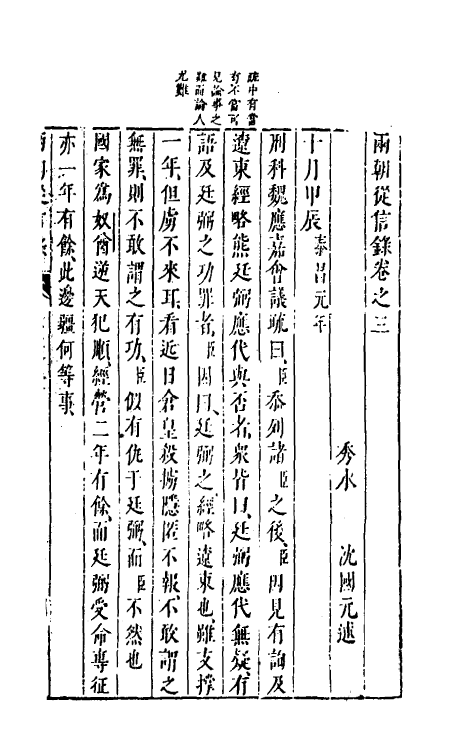 疏中有當
有不當可
見論事之
難而論人
尤難
兩朝從信錄卷之三
秀水 沈國元述
十月甲辰 泰昌元年
刑科魏應嘉會議疏曰臣忝列諸臣之後臣因見有詢及
遼東經略熊廷弼應代與否者眾皆曰廷弼應代無疑有
語及廷弼之功罪者臣因曰廷弼之經略遼東也雖支撐
一年但虜不來耳看近日倉皇殺擄隱匿不報不敢謂之
無罪則不敢謂之有功臣似有仇于廷弼而臣不然也
國家為奴酋逆天犯順經營二年有餘而廷弼受命專征
亦一年有餘此邊疆何等事